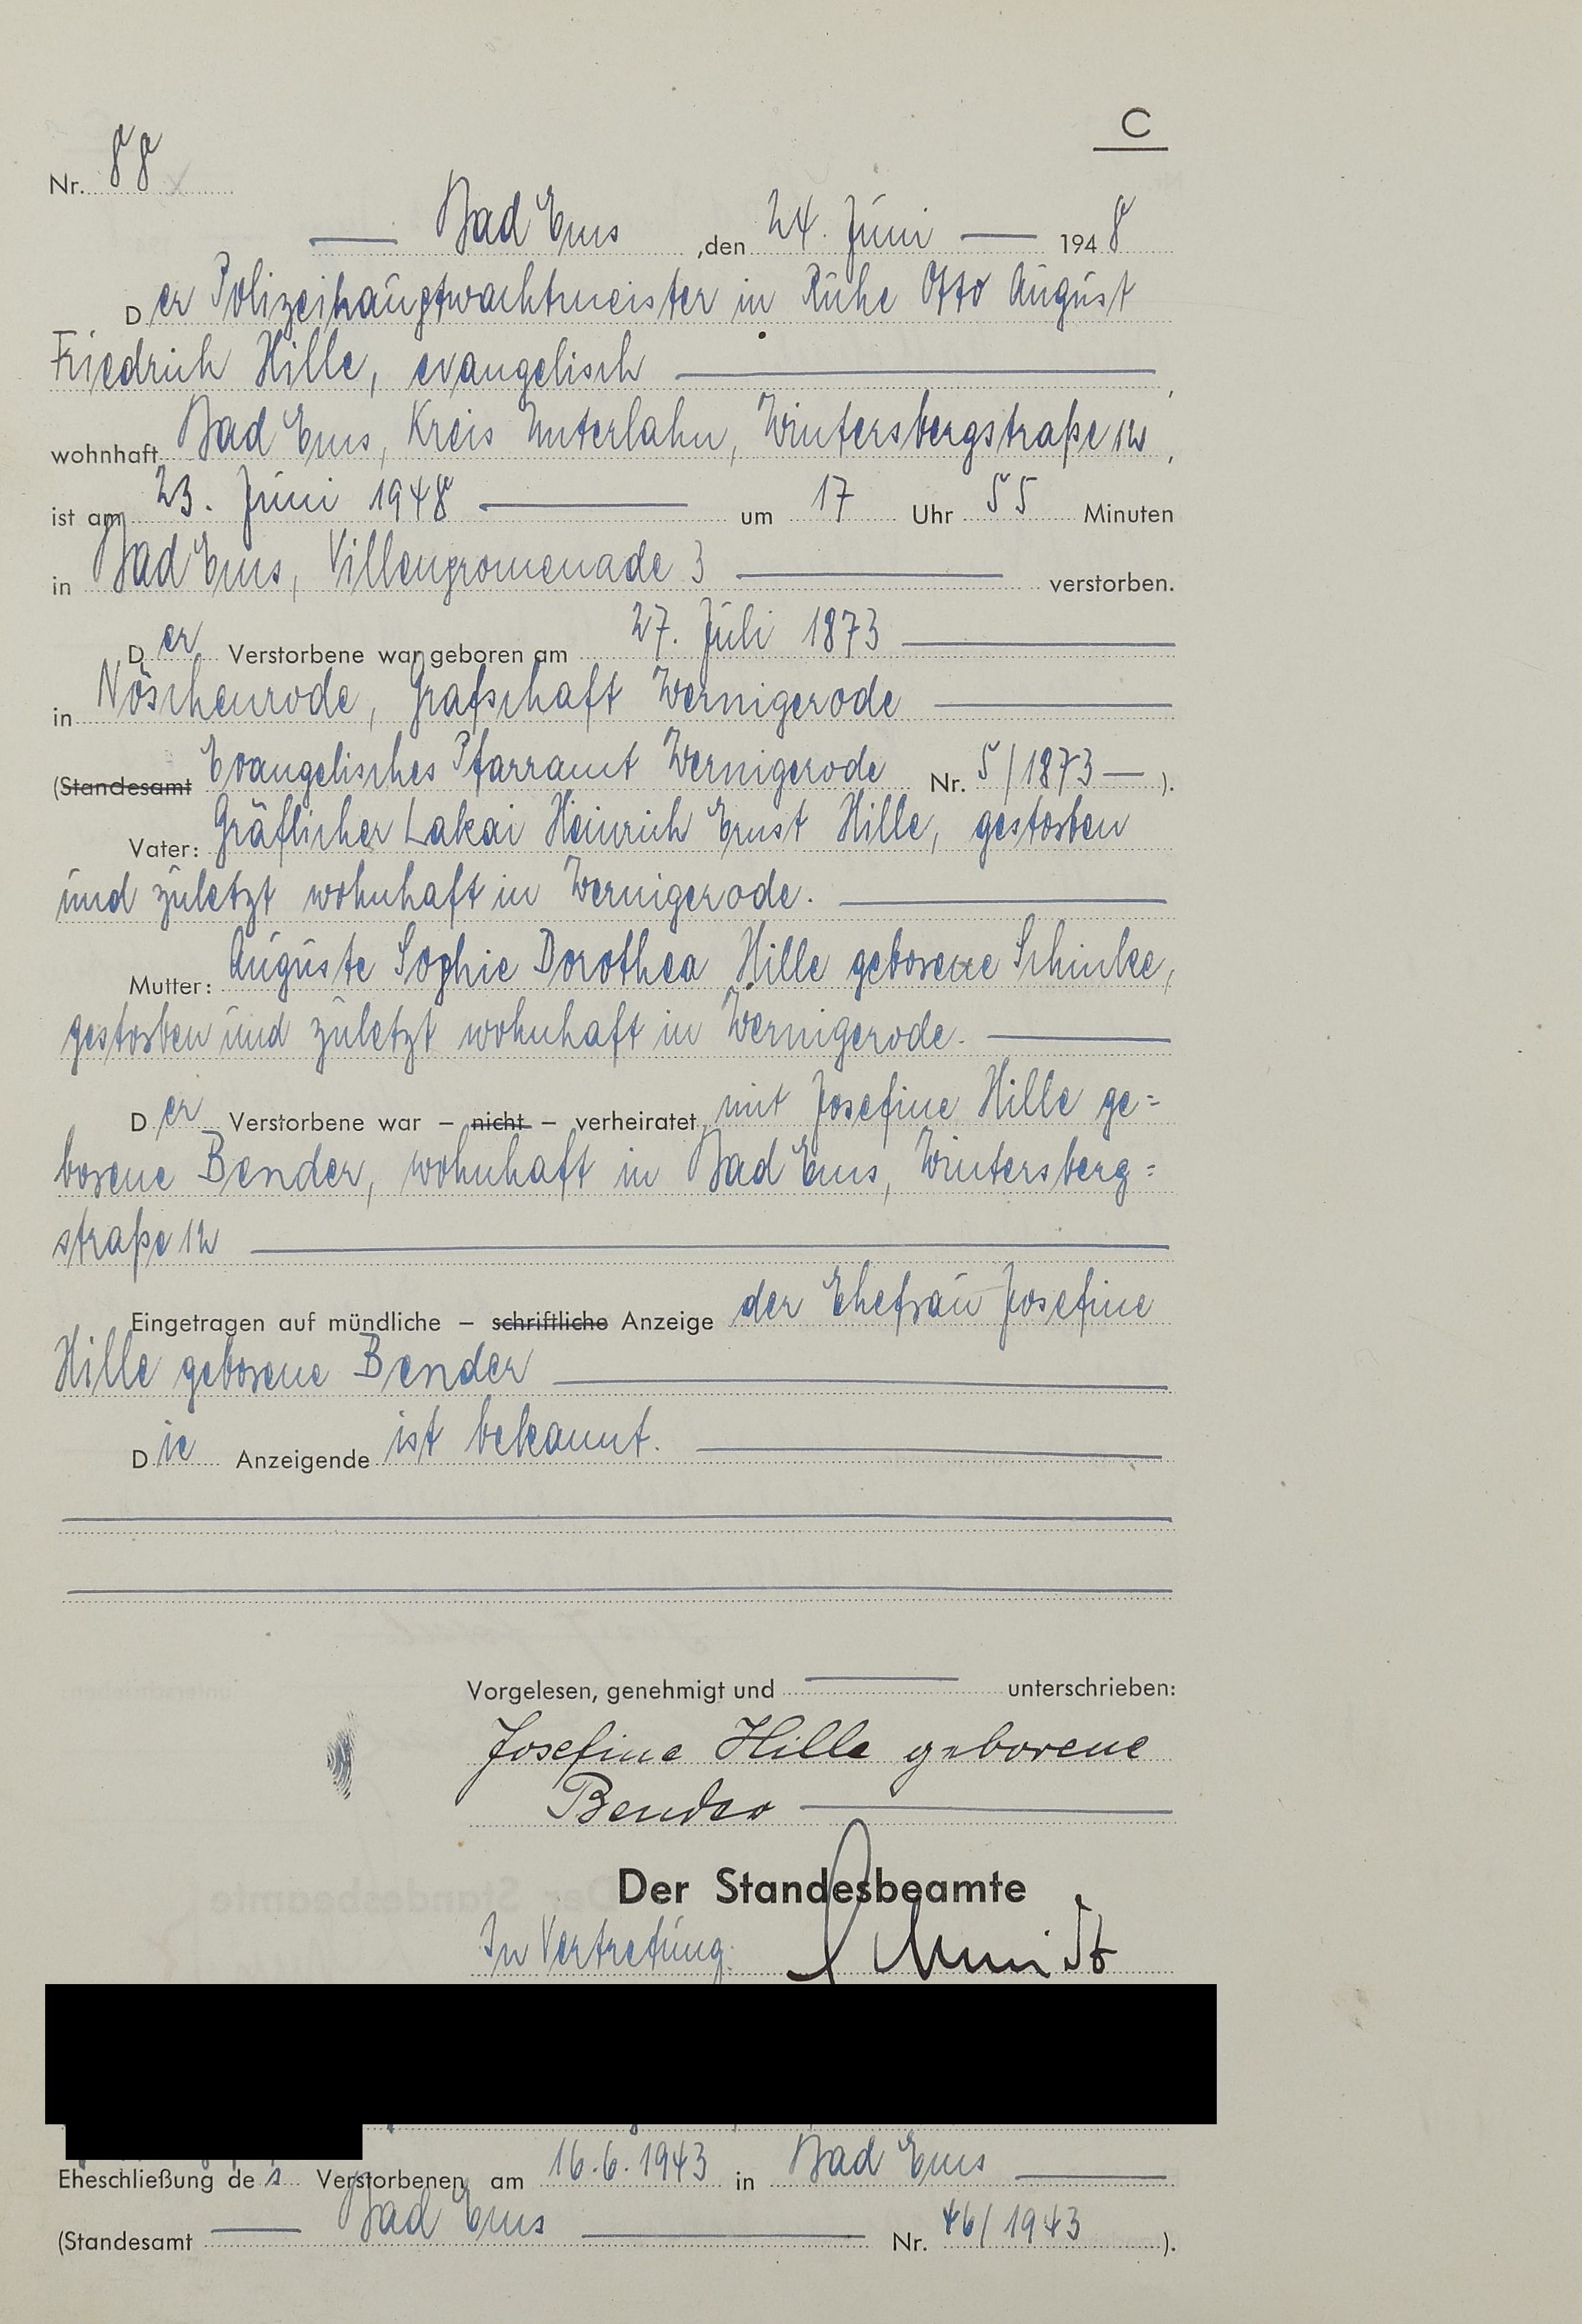 C
Nr. 88
Bad Ems, den 24. Juni 1948
Der Polizeihauptwachtmeister in Ruhe Otto August
Friedrich Hille, evangelisch ,
wohnhaft Bad Ems, Kreis Unterlahn, Wintersbergstraße 12,
ist am 23. Juni 1948 um 17 Uhr 55 Minuten
in Bad Ems, Villenpromenade 3 verstorben.
Der Verstorbene war geboren am 27. Juli 1873
in Nöschenrode, Grafschaft Wernigerode
(Standesamt Evangelisches Pfarramt Wernigerode Nr. 5/1873 — ).
Vater: Gräflicher Lakai Heinrich Ernst Hille, gestorben
und zuletzt wohnhaft in Wernigerode.
Mutter: Auguste Sophie Dorothea Hille geborene Schinke,
gestorben und zuletzt wohnhaft in Wernigerode.
Der Verstorbene war – nicht – verheiratet mit Josefine Hille ge=
borene Bender, wohnhaft in Bad Ems, Wintersberg=
straße 12
Eingetragen auf mündliche – schriftliche Anzeige der Ehefrau Josefine
Hille geborene Bender
Die Anzeigende ist bekannt.
Vorgelesen, genehmigt und unterschrieben:
Josefine Hille geborene
Bender
Der Standesbeamte
In Vertretung: Schmidt
Eheschließung des Verstorbenen am 16.6.1943 in Bad Ems
(Standesamt Bad Ems Nr. 46/1943 ).